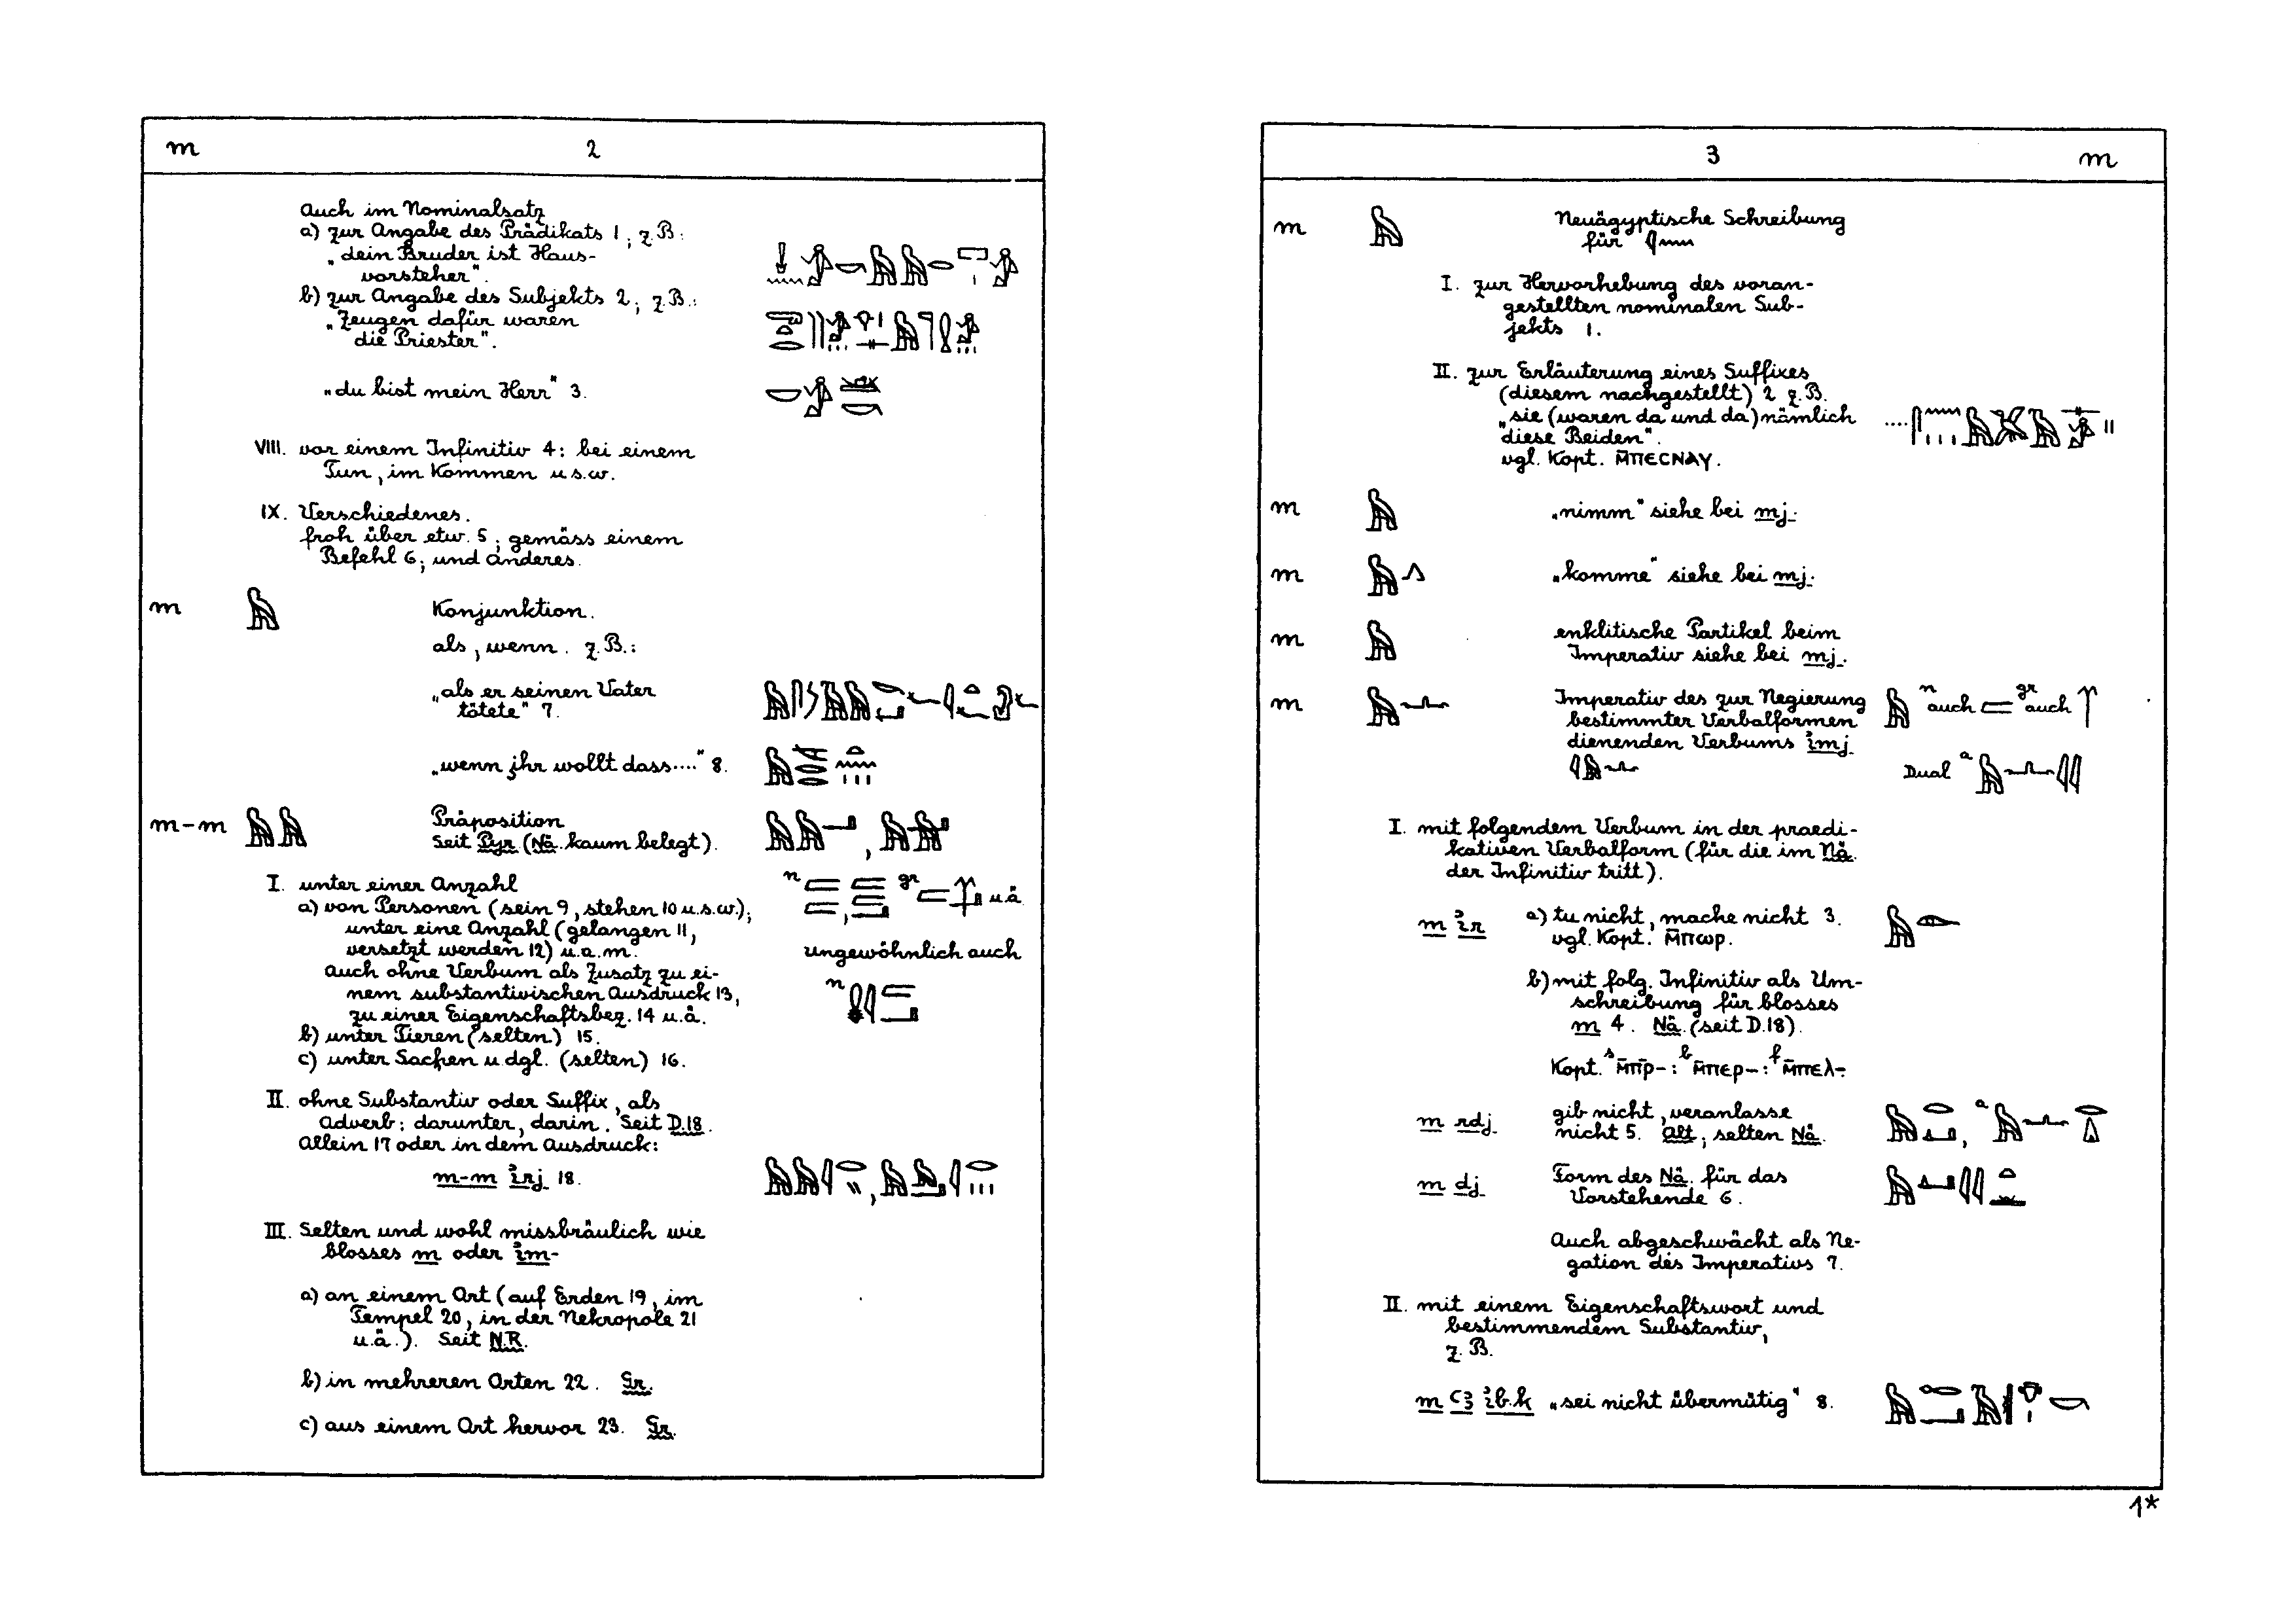 m 2
Auch im Nominalsatz
a) zur Angabe des Prädikats 1; z.B.:
„dein Bruder ist Haus-
vorsteher".
b) zur Angabe des Subjekts 2; z.B.:
„Zeugen dafür waren
die Priester".
„du bist mein Herr" 3.
VIII. vor einem Infinitiv 4: bei einem
Tun, im Kommen u.s.w.
IX. Verschiedenes.
froh über etw. 5; gemäss einem
Befehl 6; und anderes.
m 𓅓 Konjunktion.
als, wenn. z.B.:
„als er seinen Vater
tötete" 7.
„wenn ihr wollt dass...." 8.
m-m 𓅓𓅓 Präposition
Seit Pyr. (Nä. kaum belegt).
I. unter einer Anzahl
a) von Personen (sein 9, stehen 10 u.s.w.);
unter eine Anzahl (gelangen 11,
versetzt werden 12) u.a.m.
Auch ohne Verbum als Zusatz zu ei-
nem substantivischen Ausdruck 13,
zu einer Eigenschaftsbez. 14 u.ä.
b) unter Tieren (selten) 15.
c) unter Sachen u. dgl. (selten) 16.
n gr u.ä.
ungewöhnlich auch
n
II. ohne Substantiv oder Suffix, als
Adverb: darunter, darin. Seit D.18.
Allein 17 oder in dem Ausdruck:
m-m ỉrj 18.
III. Selten und wohl missbräulich wie
blosses m oder ỉm-
a) an einem Ort (auf Erden 19, im
Tempel 20, in der Nekropole 21
u.ä.). Seit N.R.
b) in mehreren Orten 22. Gr.
c) aus einem Ort hervor 23. Gr.
3 m
m 𓅓 Neuägyptische Schreibung
für 𓇋𓈖
I. zur Hervorhebung des voran-
gestellten nominalen Sub-
jekts 1.
II. zur Erläuterung eines Suffixes
(diesem nachgestellt) 2 z.B.
„sie (waren da und da) nämlich
diese Beiden".
vgl. Kopt. ⲙ̄ⲡⲉⲥⲛⲁⲩ.
m 𓅓 „nimm" siehe bei mj.
m 𓅓𓂻 „komme" siehe bei mj.
m 𓅓 enklitische Partikel beim
Imperativ siehe bei mj.
m 𓅓𓂜 Imperativ des zur Negierung
bestimmter Verbalformen
dienenden Verbums ỉmj
𓇋𓅓𓂜
𓅓 n auch 𓐝 gr auch
Dual a 𓅓𓂜𓇋𓇋
I. mit folgendem Verbum in der praedi-
kativen Verbalform (für die im Nä.
der Infinitiv tritt).
m ỉr a) tu nicht, mache nicht 3. 𓅓𓁹
vgl. Kopt. ⲙ̄ⲡⲱⲣ.
b) mit folg. Infinitiv als Um-
schreibung für blosses
m 4. Nä. (seit D.18).
Kopt. s ⲙ̄ⲡⲣ̄-: b ⲙ̄ⲡⲉⲣ-: f ⲙ̄ⲡⲉⲗ-.
m rdj gib nicht, veranlasse
nicht 5. Alt; selten Nä.
m dj Form des Nä. für das
Vorstehende 6.
Auch abgeschwächt als Ne-
gation des Imperativs 7.
II. mit einem Eigenschaftswort und
bestimmendem Substantiv,
z.B.
m ꜥꜣ ỉb.k „sei nicht übermütig" 8.
1*